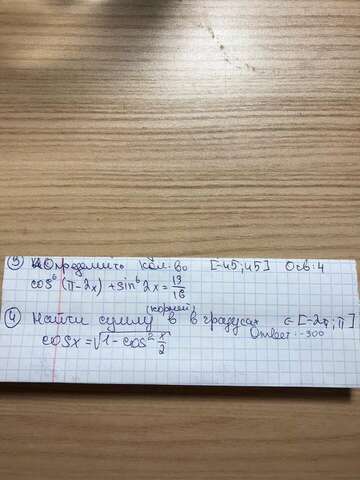 3) Определить кол. во [-45;45] Отв: 4
cos⁶(π-2x)+sin⁶2x=13/16
4) Найти сумму (корней) в градусах ∈[-2π;π]
cosx=√1-cos²x/2 Ответ: -300